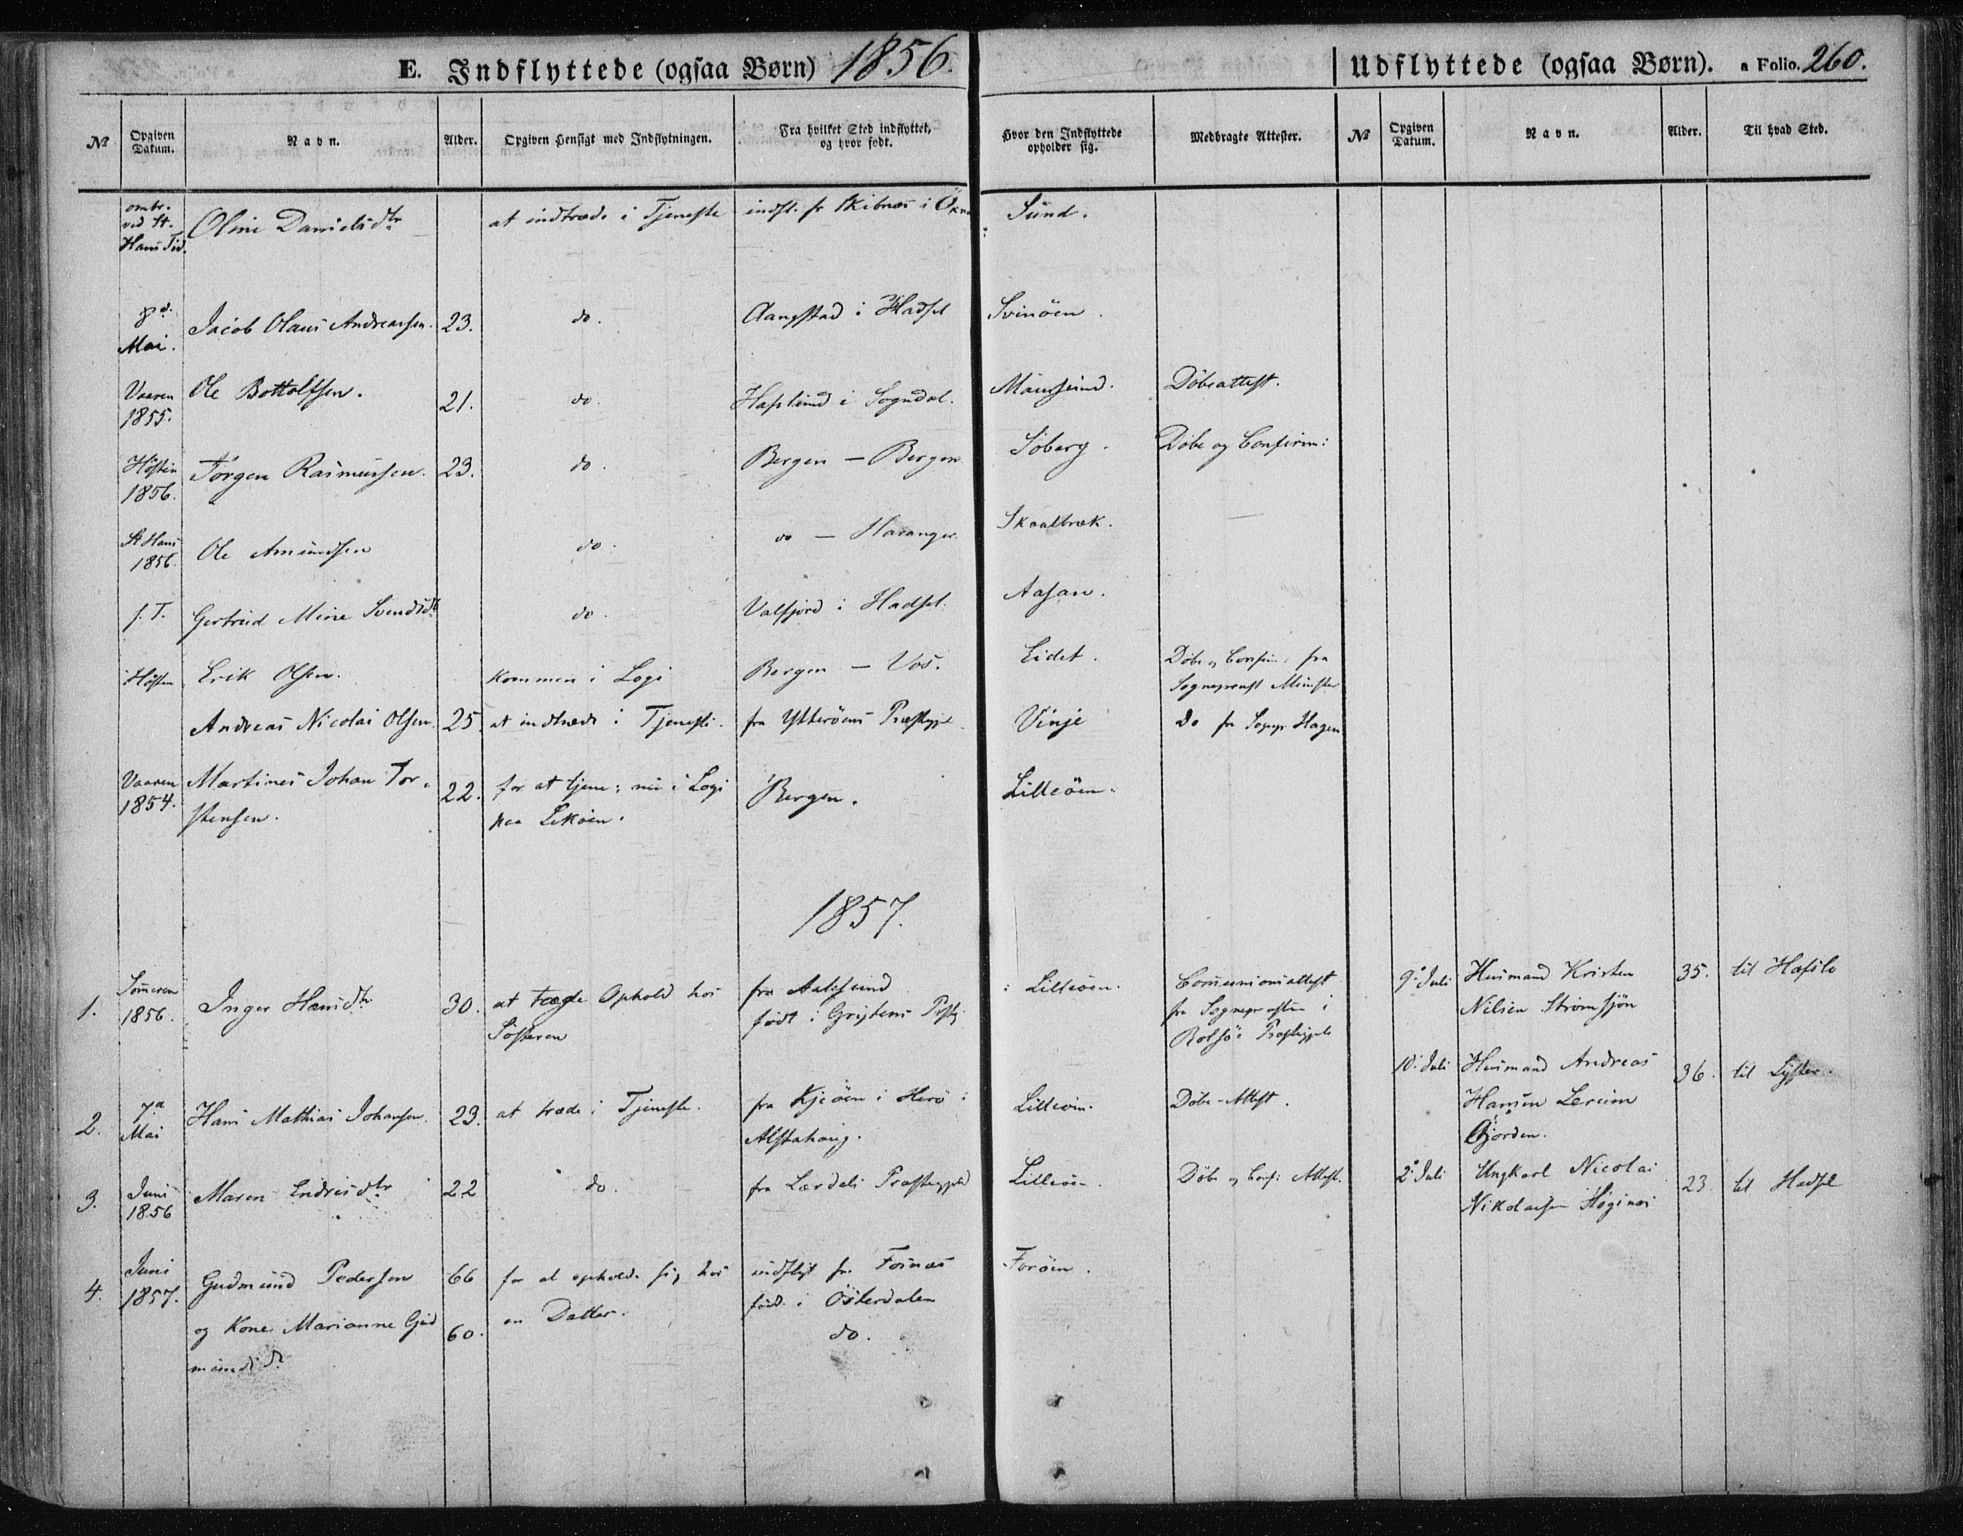 E. Indflyttede (ogsaa Børn) 1856.
Udflyttede (ogsaa Børn). a Folio. 260.
№ Opgiven Datum. Navn. Alder. Opgiven Hensigt med Indflytningen. Fra hvilket Sted indflyttet, og hvor født. Hvor den Indflyttede opholder sig. Medbragte Attester. № Opgiven Datum. Navn. Alder. Til hvad Sted.
omtr. ved St. Hans Tid. Oline Danielsdtr at indtræde i Tjeneste indfl. fr Skibnæs i Sund.
8d. Mai. Jacob Olaus Andreassen. 23. do. Aangstad i Hadsel Svinöen.
Vaaren 1855. Ole Bottolfsen. 21. do. Haslund i Sogndal. Maursund. Döbeattest.
Hösten 1856. Jörgen Rasmussen. 23. do. Bergen — Bergen Söberg. Döbe og Confirm:
St Hans 1856. Ole Amundsen do. do — Haranger Skaalbræk.
s. T. Gertrud Mine Svendsdtr do. Valfjord i Hadsel. Aasan.
Hösten Erik Olsen. kommen i Logi Bergen — Vos. Eidet. Döbe og Confirm: fra
Sogneprest Münster
Andreas Nicolai Olsen 25. at indtræde i Tjeneste. fra Ytteröens Præstegjel. Vinje do fr Sogpr Hagen
Vaaren 1854. Martines Johan Tor- 22. for at tjene; nu i Logi Bergen. Lilleöen.
stensen. paa Leköen.
1857.
1. Sommeren 1856. Inger Hansdtr 30. at tage Ophold hos fra Aalesund Lilleöen. Communionsattest 9. Juli Husmand Kristen 35. til Hafslo
Sösteren födt i Grytens Prstgj fra Sognepresten i Nilsen Strömsjön
Præstegjeld
10. Juli Husmand Andreas 36. til Lyster.
2. 7a Mai Hans Mathias Johansen. 23. at træde i Tjeneste. fra Kjeöen i Herö i Lilleöen. Döbe-Attest. Hansen Lereim
Alstahoug. Gjorden.
3. Juni 1856 Maren Endresdtr 22 do. fra Lærdals Præstegjeld Lilleöen. Döbe og Conf: Attest. 2. Juli Ungkarl Nicolai 23. til Hadsel
Nikolaisen
4. Juni 1857. Gudmund Pedersen 66 for at opholde sig hos indflyt fra Fosnæs Foröen.
en Datter. föd. i Österdalen
og Kone Marianne Gud 60. do.
mundsdr